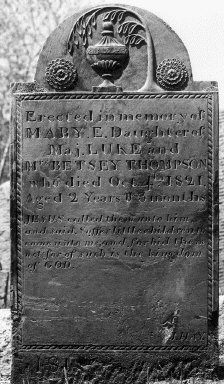 Erected in memory of
MARY E. Daughter of
Maj. LUKE and
Mrs BETSEY THOMPSON
who died Oct. 1821
Aged 2 Years months
JESUS called them unto him
and said, Suffer little children to
come unto me and forbid them
not for of such is the kingdom
of GOD.